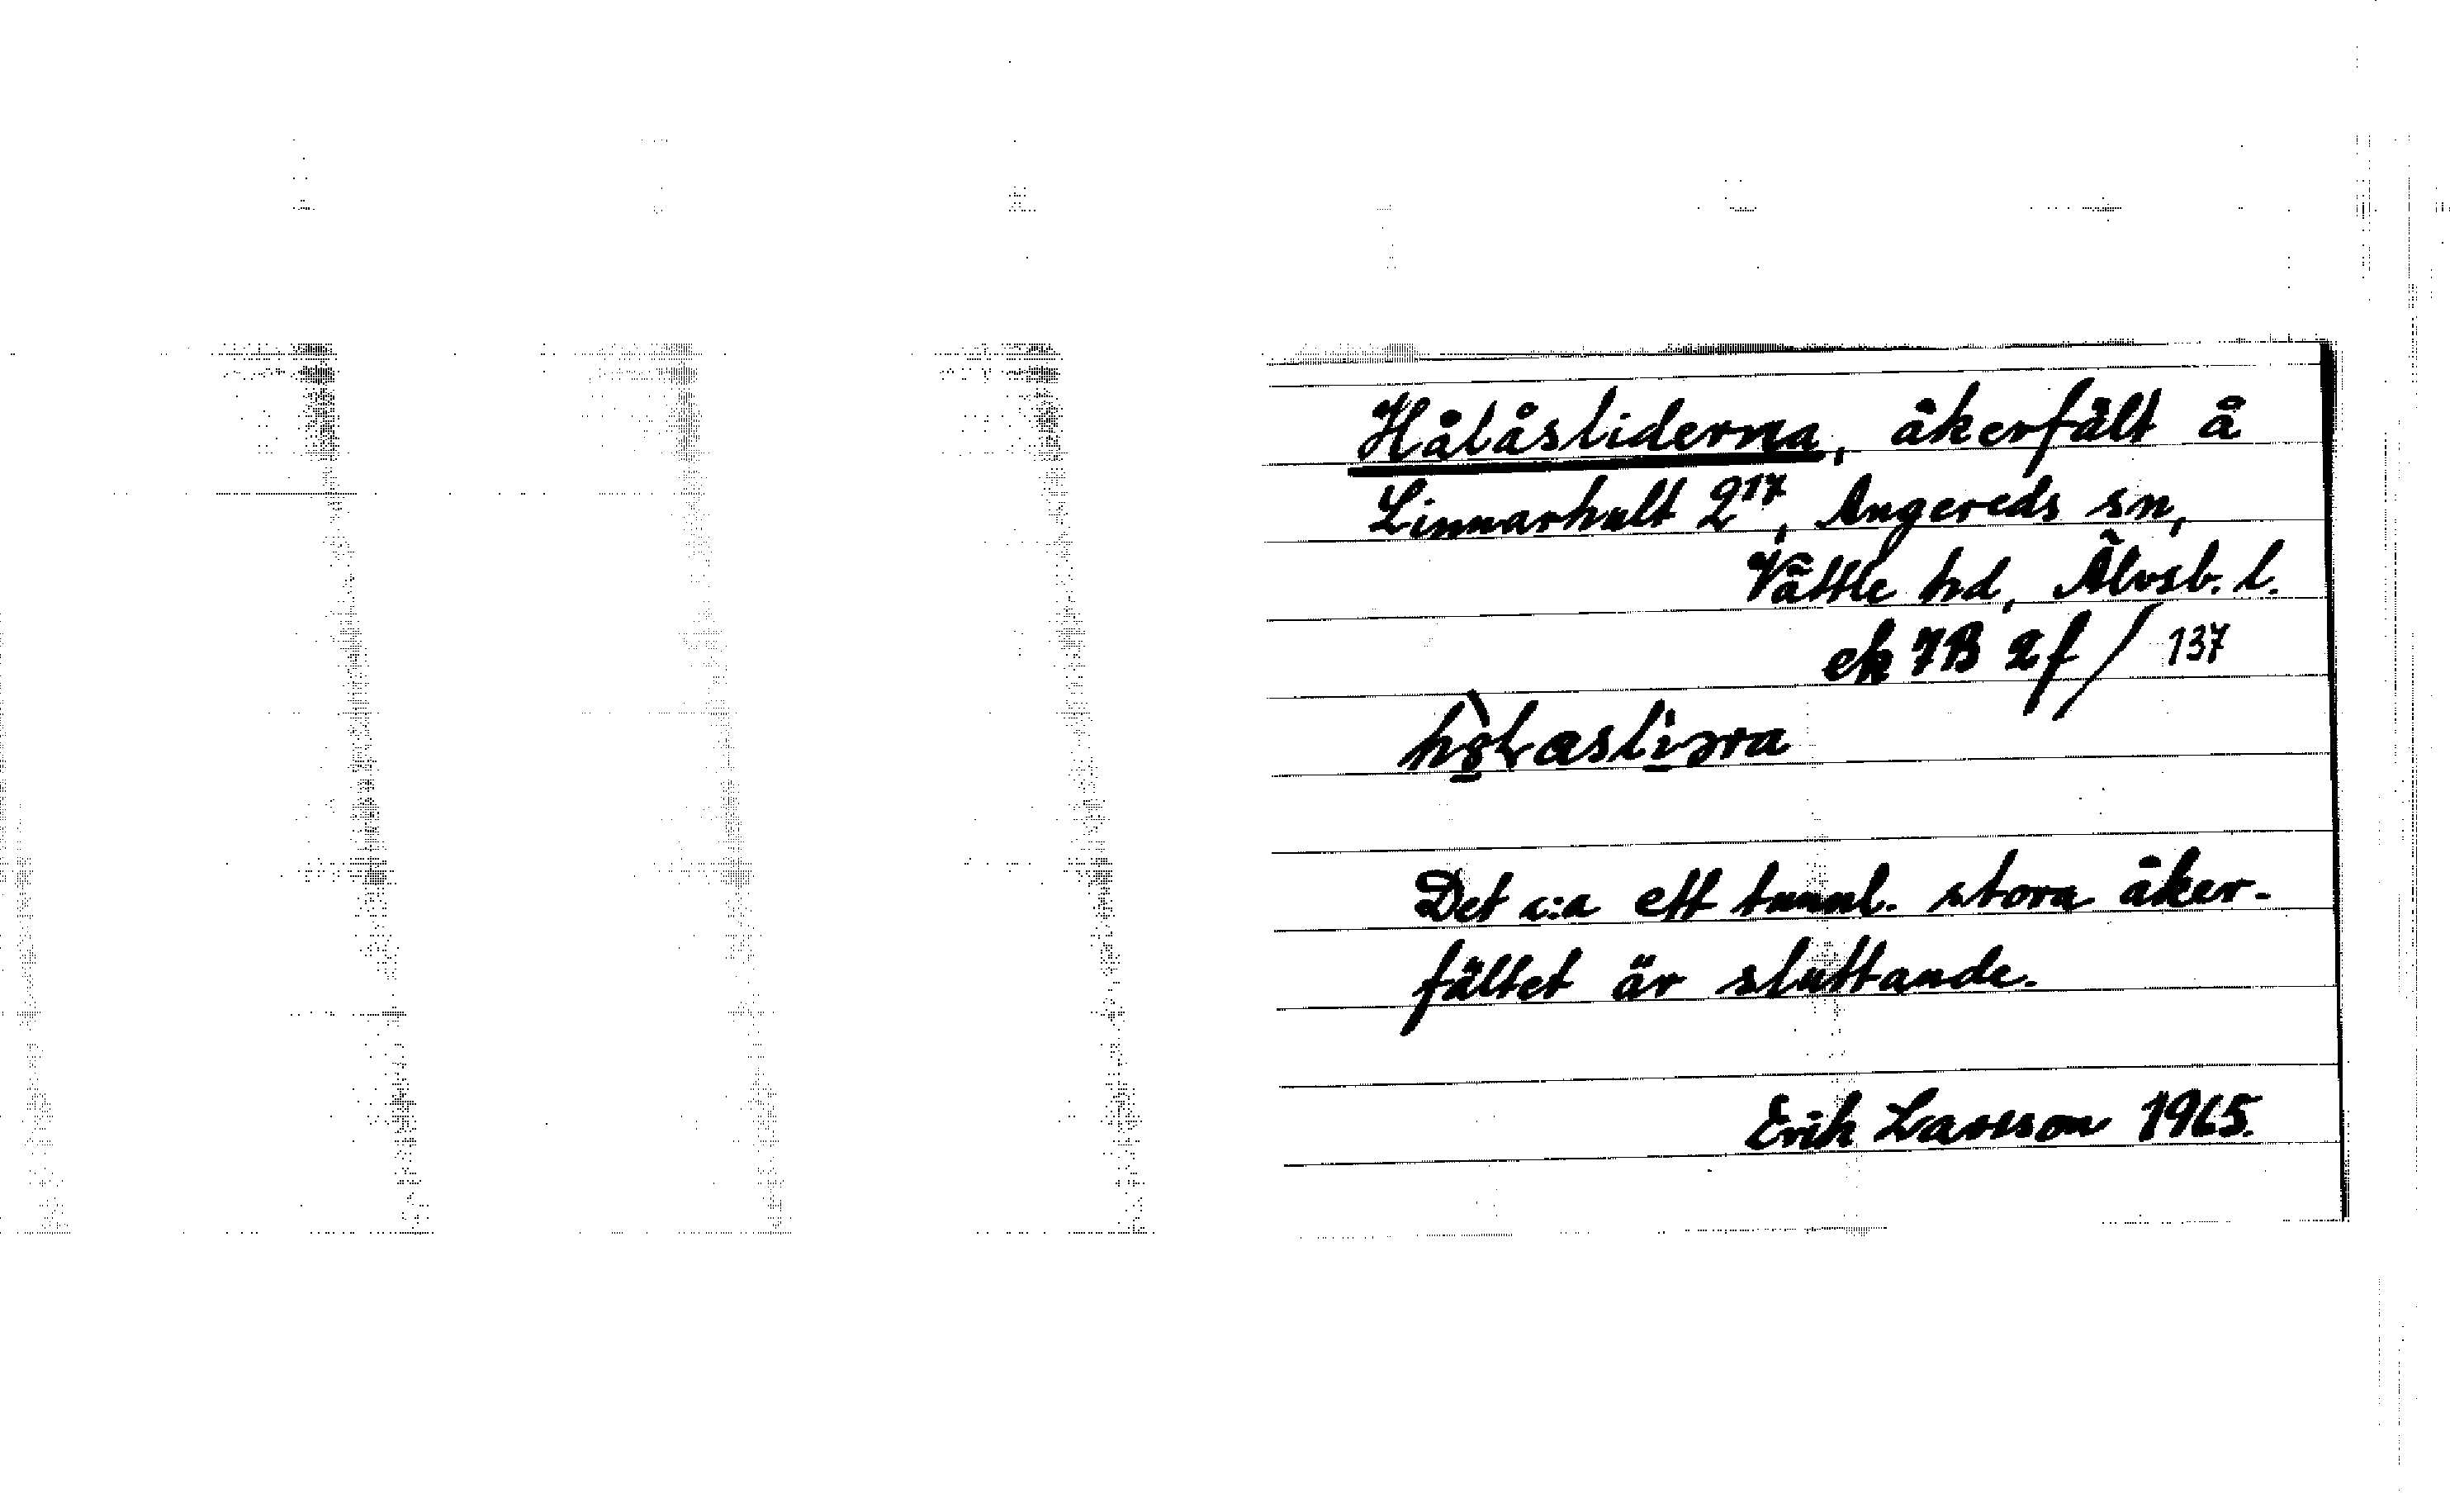 Hålåsliderna, åkerfält å
Linnarhult 2¹⁷, Angereds sn,
Vättle hd, Älvsb. l.
ek 7B 2f / 137
Det c:a ett tunnl. stora åker-
fältet är sluttande.
Erik Larsson 1965.